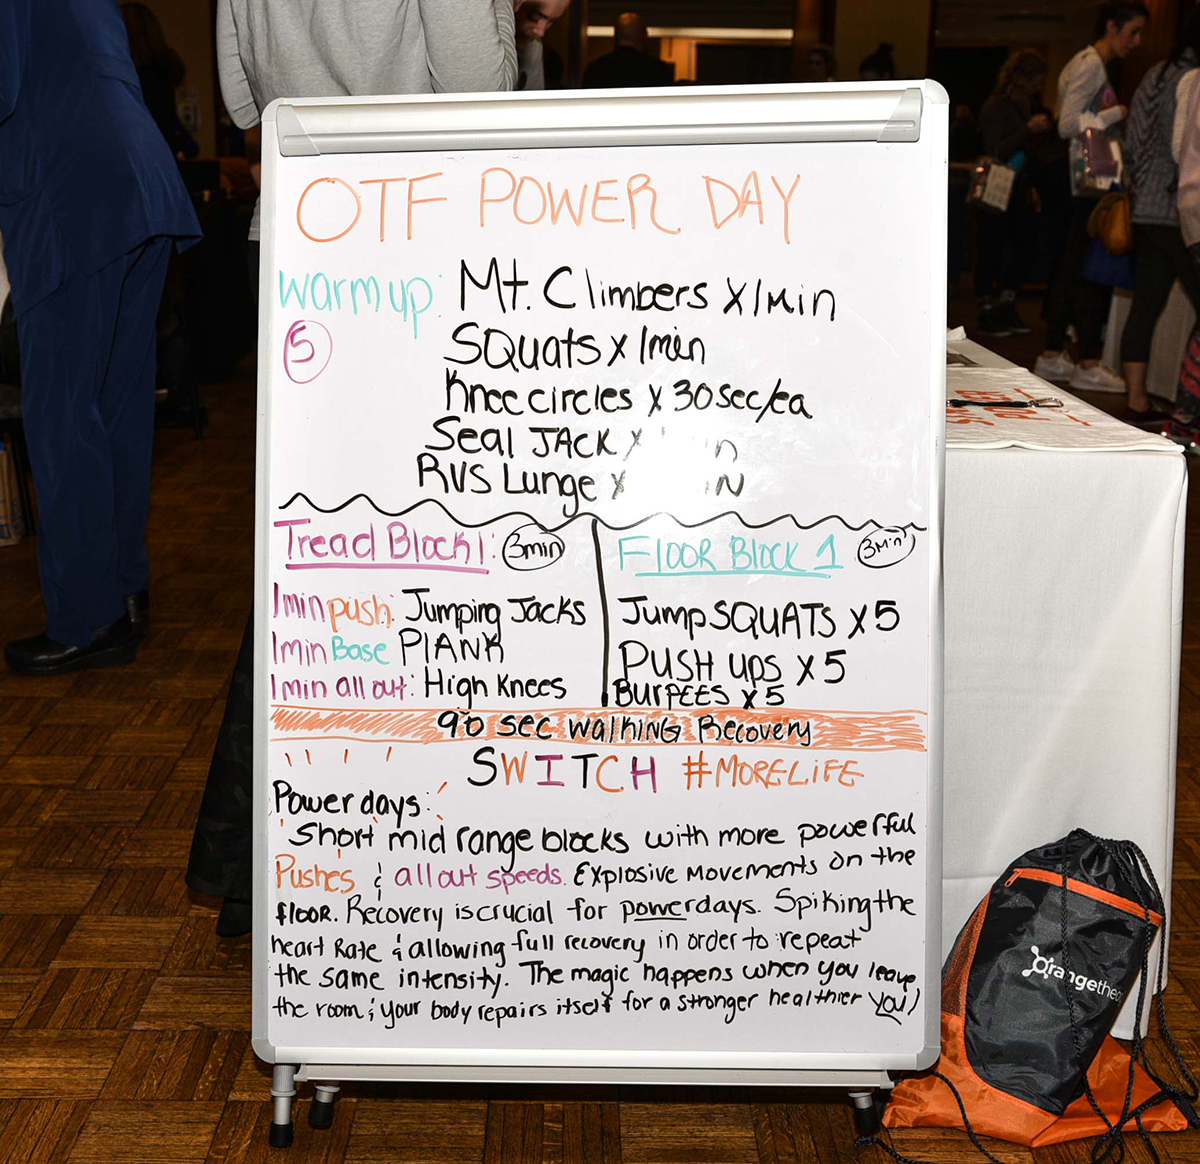 OTF POWER DAY
warm up: Mt. Climbers x 1min
5
SQuats x 1min
Knee circles x 30sec/ea
Seal JACK x
RVS Lunge x
Tread Block 1: 3min
FLOOR BLOCK 1 3Min
1min push: Jumping Jacks
1min Base PlANK
1min all out: High Knees
Jump SQUATS x 5
PUSH ups x 5
BURPEES x 5
90 sec walking Recovery
SWITCH #MORELIFE
Power days:
Short mid range blocks with more powerful
Pushes & all out speeds. Explosive movements on the
floor. Recovery is crucial for powerdays. Spiking the
heart Rate & allowing full recovery in order to repeat
the same intensity. The magic happens when you leave
the room & your body repairs itself for a stronger healthier you!